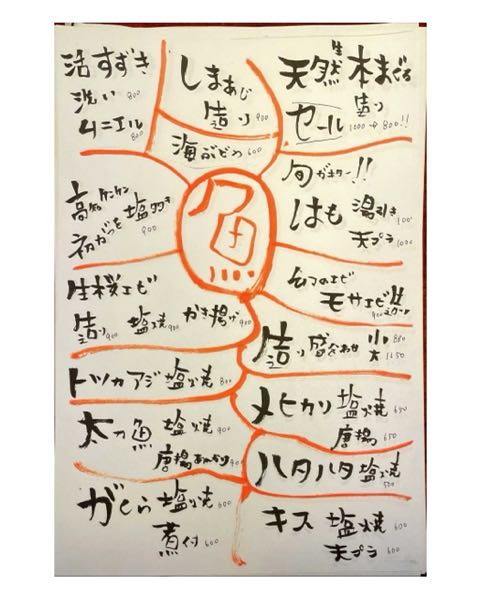 活すずき
洗い 800
ムニエル 800
しまあじ
造り 900
海ぶどう 600
天然生本まぐろ
セール 造り
1000→800!!
旬がキター!!
はも 湯引き
天プラ 1000
魚
高知ケンケン
初がつを 塩タタキ
900
生桜エビ
造り 900 塩焼 900 かき揚げ 900
モサエビ
造り盛合わせ 小 880
大 1650
トツカアジ 塩焼 800
メヒカリ 塩焼 650
唐揚 650
太刀魚 塩焼 900
唐揚あんかけ 900
ハタハタ 塩焼 500
がしら 塩焼 600
煮付 600
キス 塩焼 600
天プラ 600